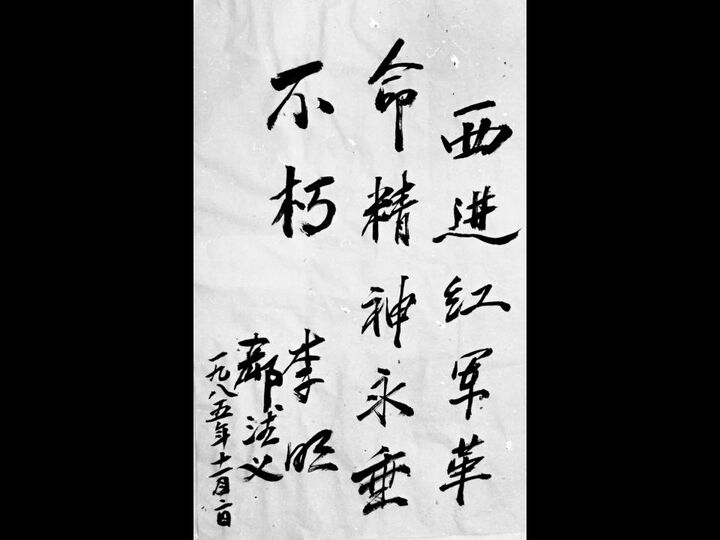 西进红军革
命精神永垂
不朽
李明
郝法义
一九八五年十一月二日